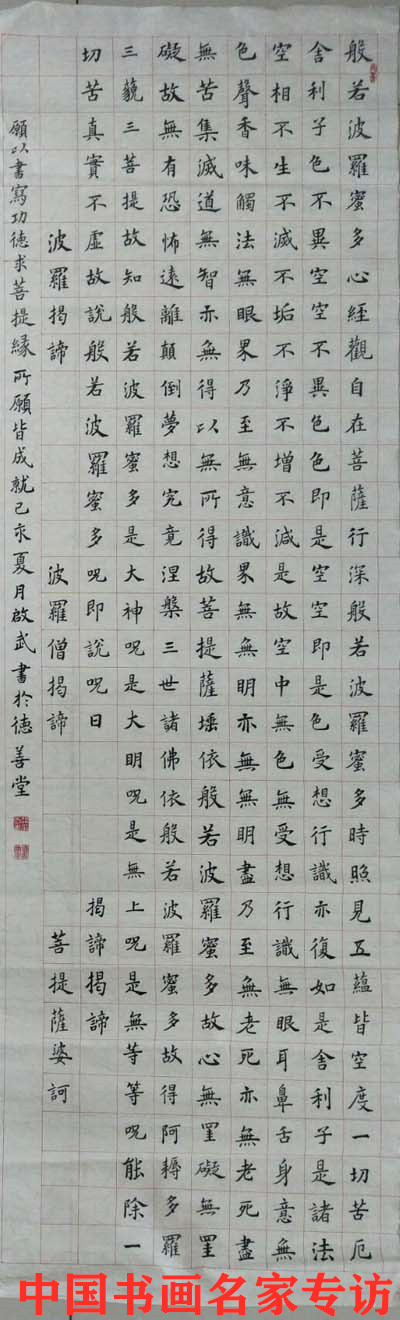 般若波羅蜜多心經觀自在菩薩行深般若波羅蜜多時照見五蘊皆空度一切苦厄
舍利子色不異空空不異色色即是空空即是色受想行識亦復如是舍利子是諸法
空相不生不滅不垢不淨不增不減是故空中無色無受想行識無眼耳鼻舌身意無
色聲香味觸法無眼界乃至無意識界無無明亦無無明盡乃至無老死亦無老死盡
無苦集滅道無智亦無得以無所得故菩提薩埵依般若波羅蜜多故心無罣礙無罣
礙故無有恐怖遠離顛倒夢想究竟涅槃三世諸佛依般若波羅蜜多故得阿耨多羅
三藐三菩提故知般若波羅蜜多是大神呪是大明呪是無上呪是無等等呪能除一
切苦真實不虛故說般若波羅蜜多呪即說呪曰 揭諦揭諦
波羅揭諦 波羅僧揭諦 菩提薩婆訶
願以書寫功德求菩提緣所願皆成就己亥夏月啟武書於德善堂
中国书画名家专访